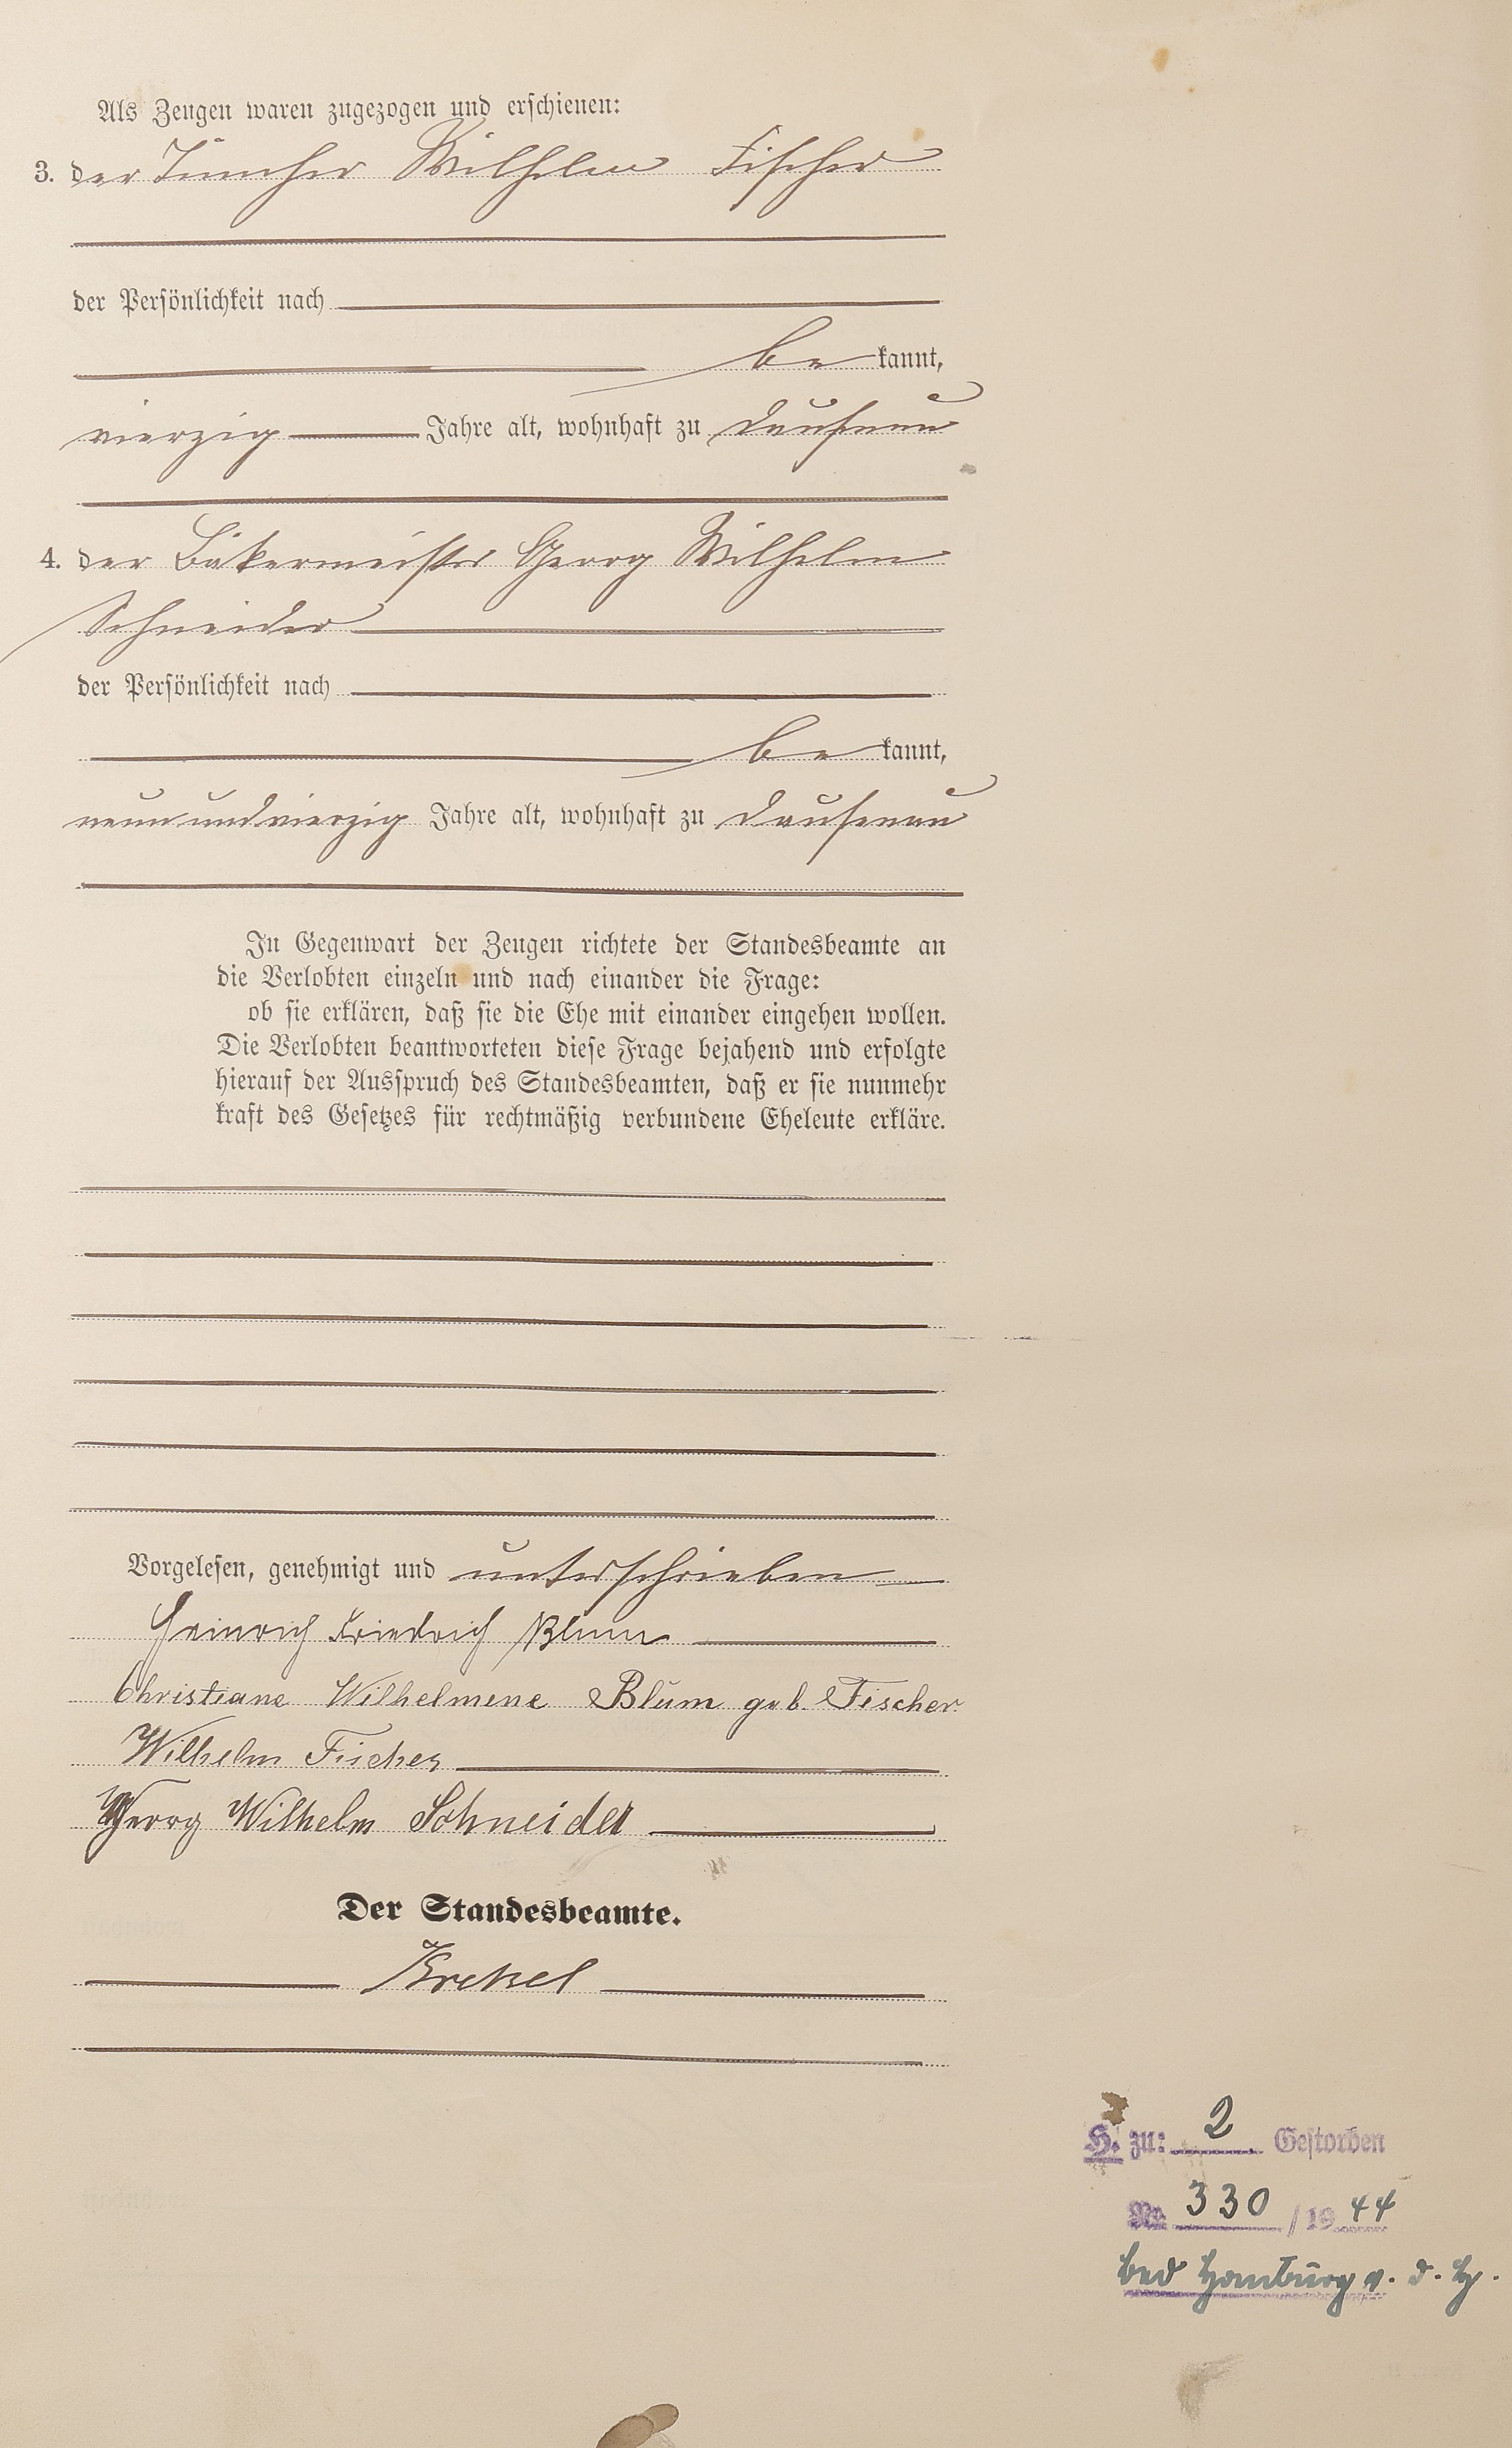 Als Zeugen waren zugezogen und erschienen:
3. der Tüncher Wilhelm Fischer
der Persönlichkeit nach
be kannt,
vierzig Jahre alt, wohnhaft zu Dausenau
4. der Bäkermeister Georg Wilhelm
Schneider
der Persönlichkeit nach
be kannt,
neunundvierzig Jahre alt, wohnhaft zu Dausenau
In Gegenwart der Zeugen richtete der Standesbeamte an
die Verlobten einzeln und nach einander die Frage:
ob sie erklären, daß sie die Ehe mit einander eingehen wollen.
Die Verlobten beantworteten diese Frage bejahend und erfolgte
hierauf der Ausspruch des Standesbeamten, daß er sie nunmehr
kraft des Gesetzes für rechtmäßig verbundene Eheleute erkläre.
Vorgelesen, genehmigt und unterschrieben
Heinrich Friedrich Blum
Christiane Wilhelmene Blum geb. Fischer
Wilhelm Fischer
Georg Wilhelm Schneider
Der Standesbeamte.
Krekel
H. zu: 2 Gestorben
Nr. 330 / 19 44
Bad Homburg v. d. H.